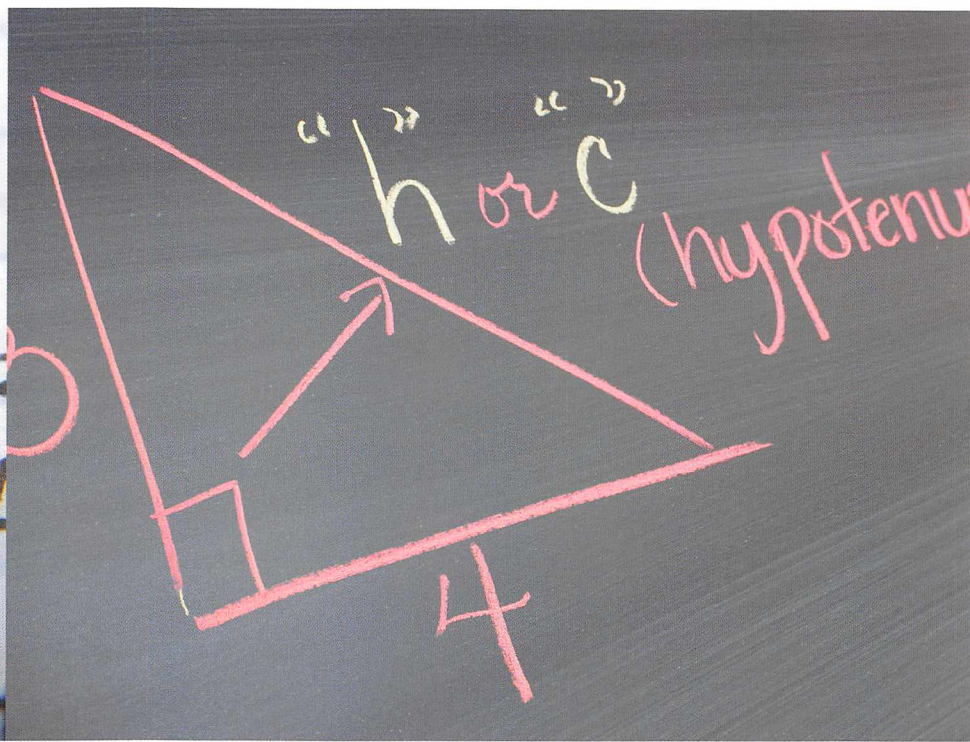 “h” or “c”
(hypotenu
4